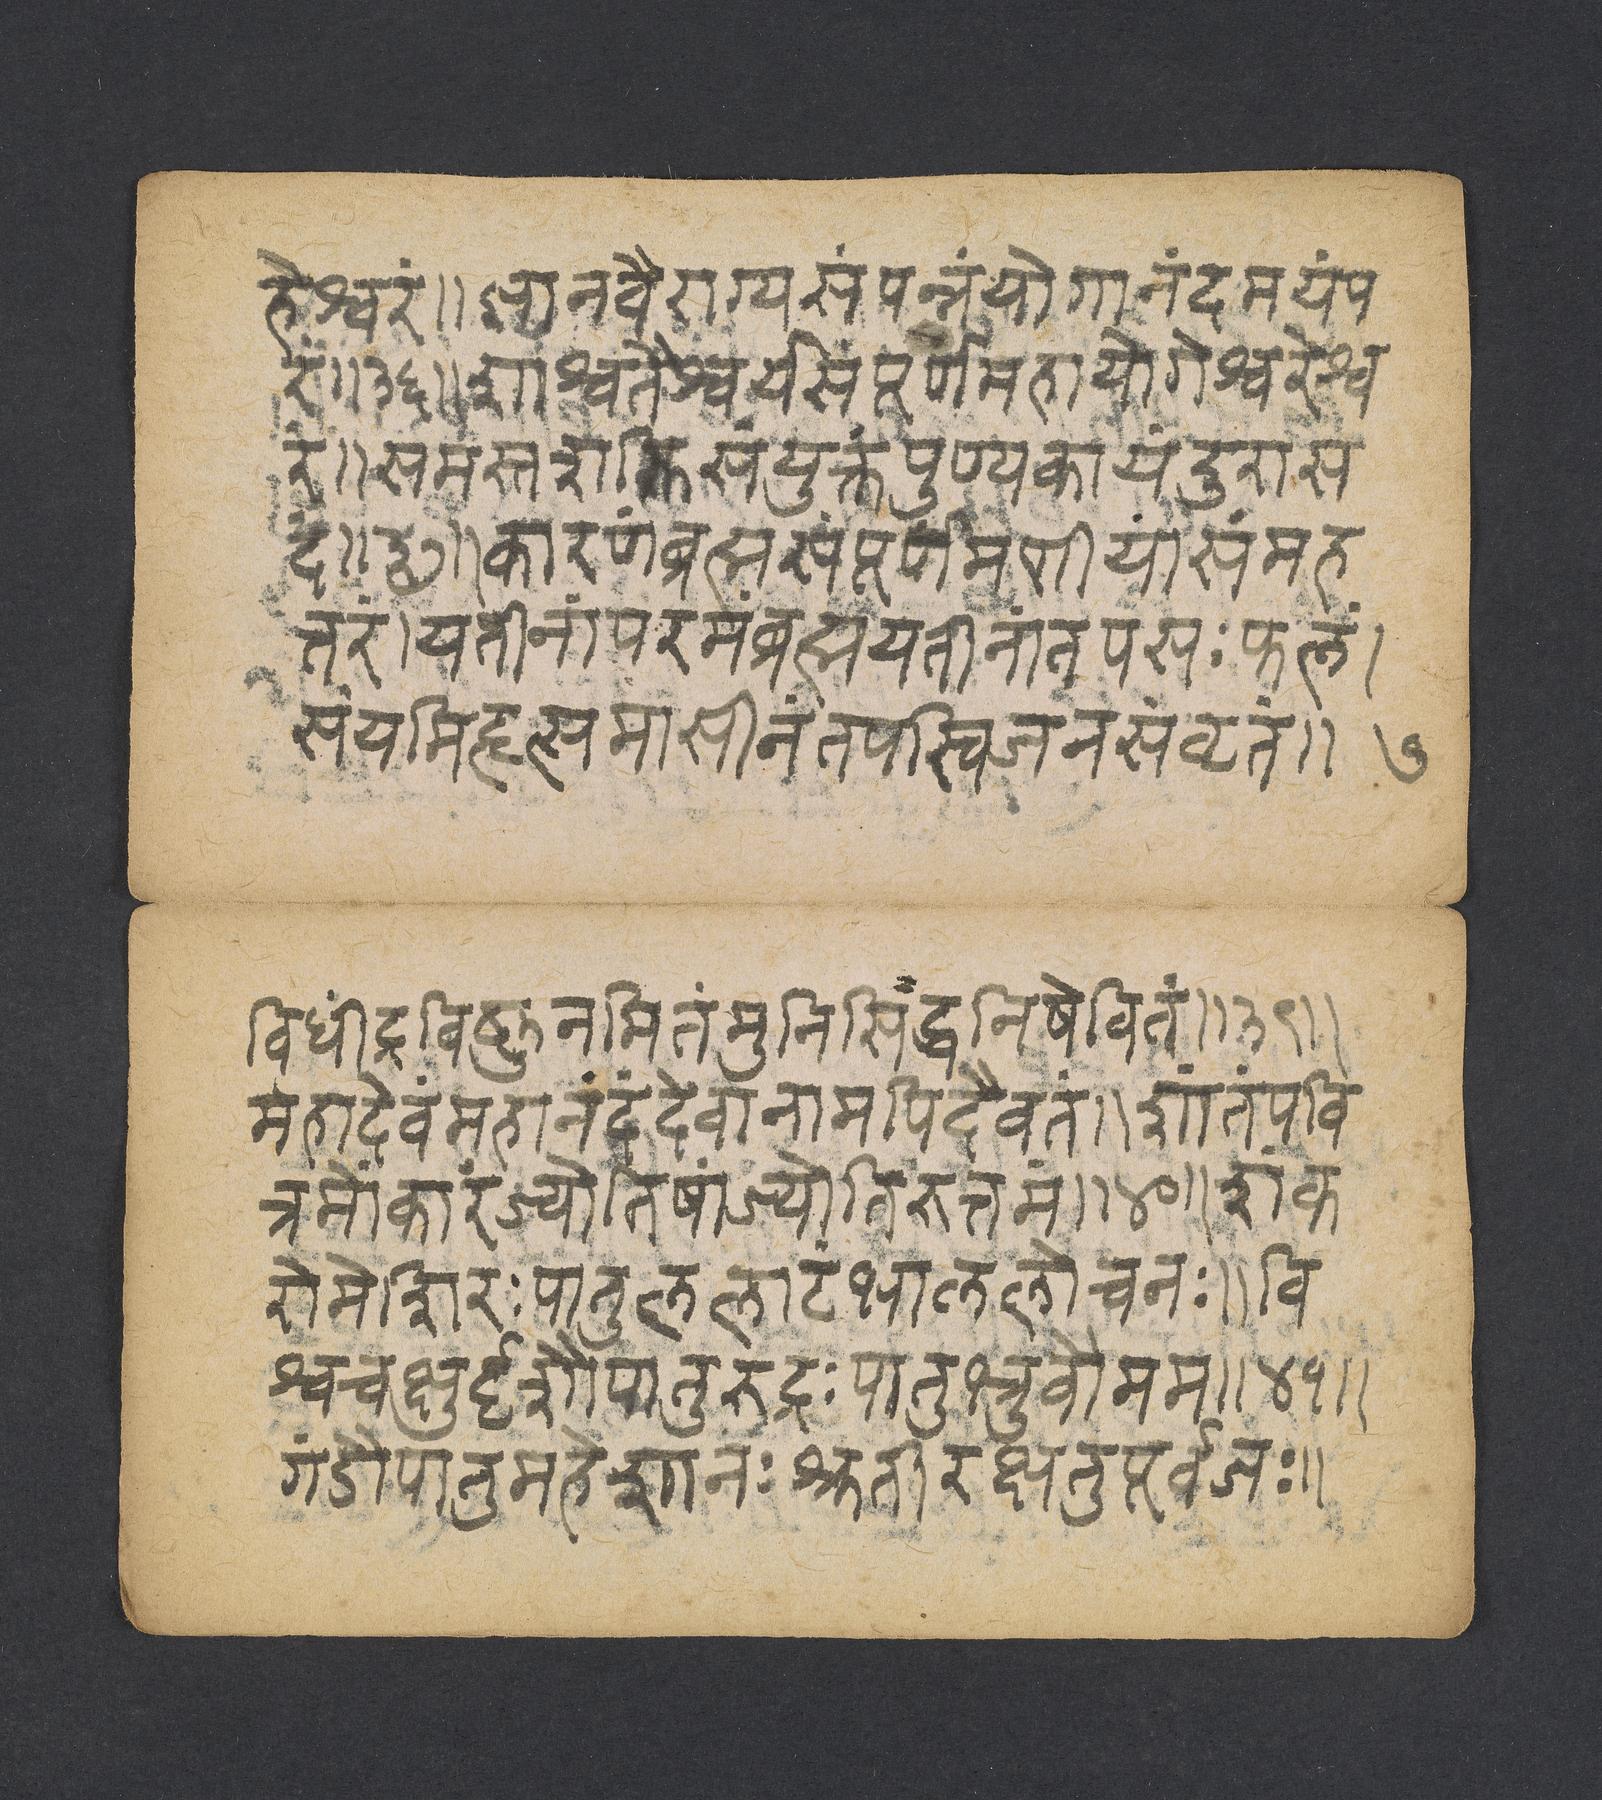 हेश्वरं॥ज्ञानवैराग्यसंपन्नंयोगानंदमयंप
रं॥३६॥शाश्वतैश्वर्यसंपूर्णंमहायोगेश्वरेश्व
रं॥समस्तशक्तिसंयुक्तंपुण्यकायंदुरास
दं॥३७॥कारणंब्रह्मसंपूर्णमणीयांसंमह
त्तरं।यतीनांपरमंब्रह्मयतीनांतपसःफलं।
संयमिहृत्समासीनंतपस्विजनसंवृतं॥ ७
विधींद्रविष्णुनमितंमुनिसिद्धनिषेवितं॥३९॥
महादेवंमहानंदंदेवानामपिदैवतं॥शांतंपवि
त्रमोंकारंज्योतिषांज्योतिरुत्तमं॥४०॥शंक
रोमेशिरःपातुललाटंभाललोचनः॥वि
श्वचक्षुर्दृशौपातुरुद्रःपातुभ्रुवौमम॥४१॥
गंडौपातुमहेशानःश्रुतीरक्षतुपूर्वजः॥